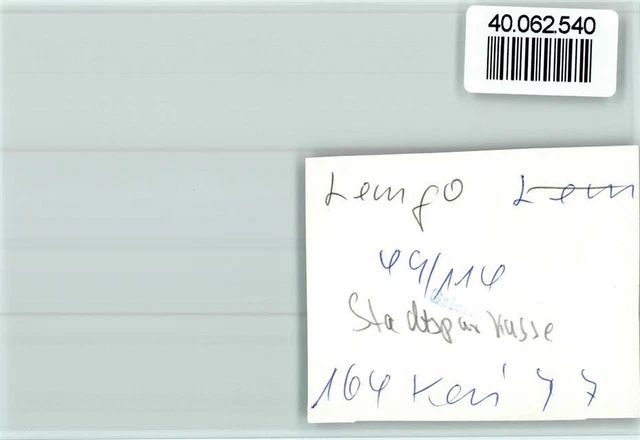 40.062.540
Lemgo Lem
49/114
Stadtsparkasse
164